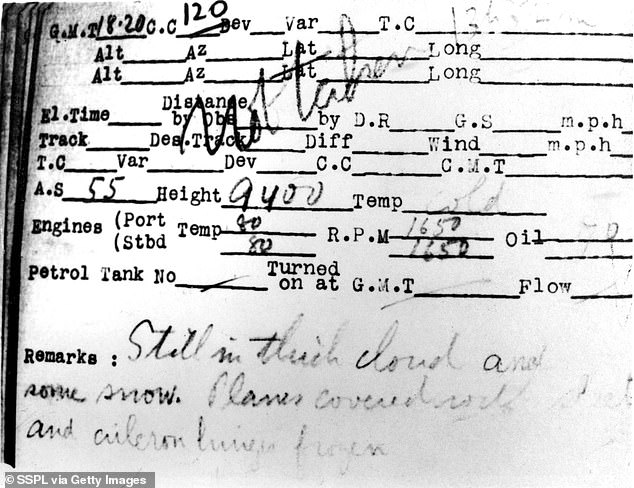 G.M.T 18.20 C.C 120 Dev Var T.C
Alt Az Lat Long
Alt Az Lat Long
Not taken
El.Time Distance by obs by D.R G.S m.p.h
Track Des.Track Diff Wind m.p.h
T.C Var Dev C.C G.M.T
A.S 55 Height 9400 Temp cold
Engines (Port Temp 80 R.P.M 1650 Oil
(Stbd 80 1650
Petrol Tank No Turned on at G.M.T Flow
Remarks : Still in thick cloud and
some snow. Planes covered with
and aileron hinges frozen
© SSPL via Getty Images